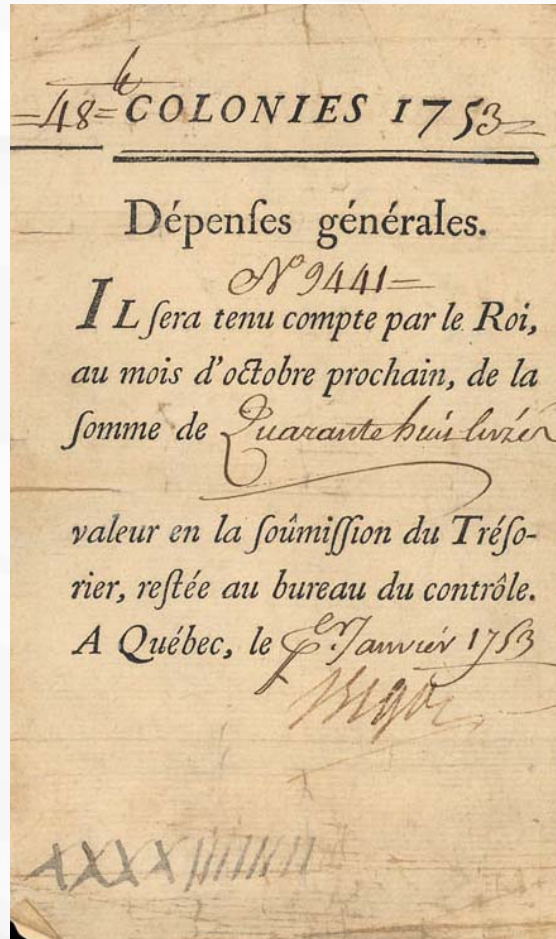 =48=lt COLONIES 1753=
Dépenſes générales.
No 9441=
IL ſera tenu compte par le Roi,
au mois d'octobre prochain, de la
ſomme de Quarante huit livres
valeur en la ſoûmiſſion du Tréſo-
rier, reſtée au bureau du contrôle.
A Québec, le Per. Janvier 1753
Bigot
XXXX||||||||